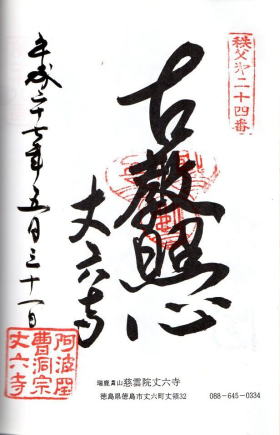 秩父㐧二十四番
古教照心
丈六寺
平成二十七年五月三十一日
阿波國
曹洞宗
丈六寺
慈雲院丈六寺
徳島県徳島市丈六町丈領32 088-645-0334